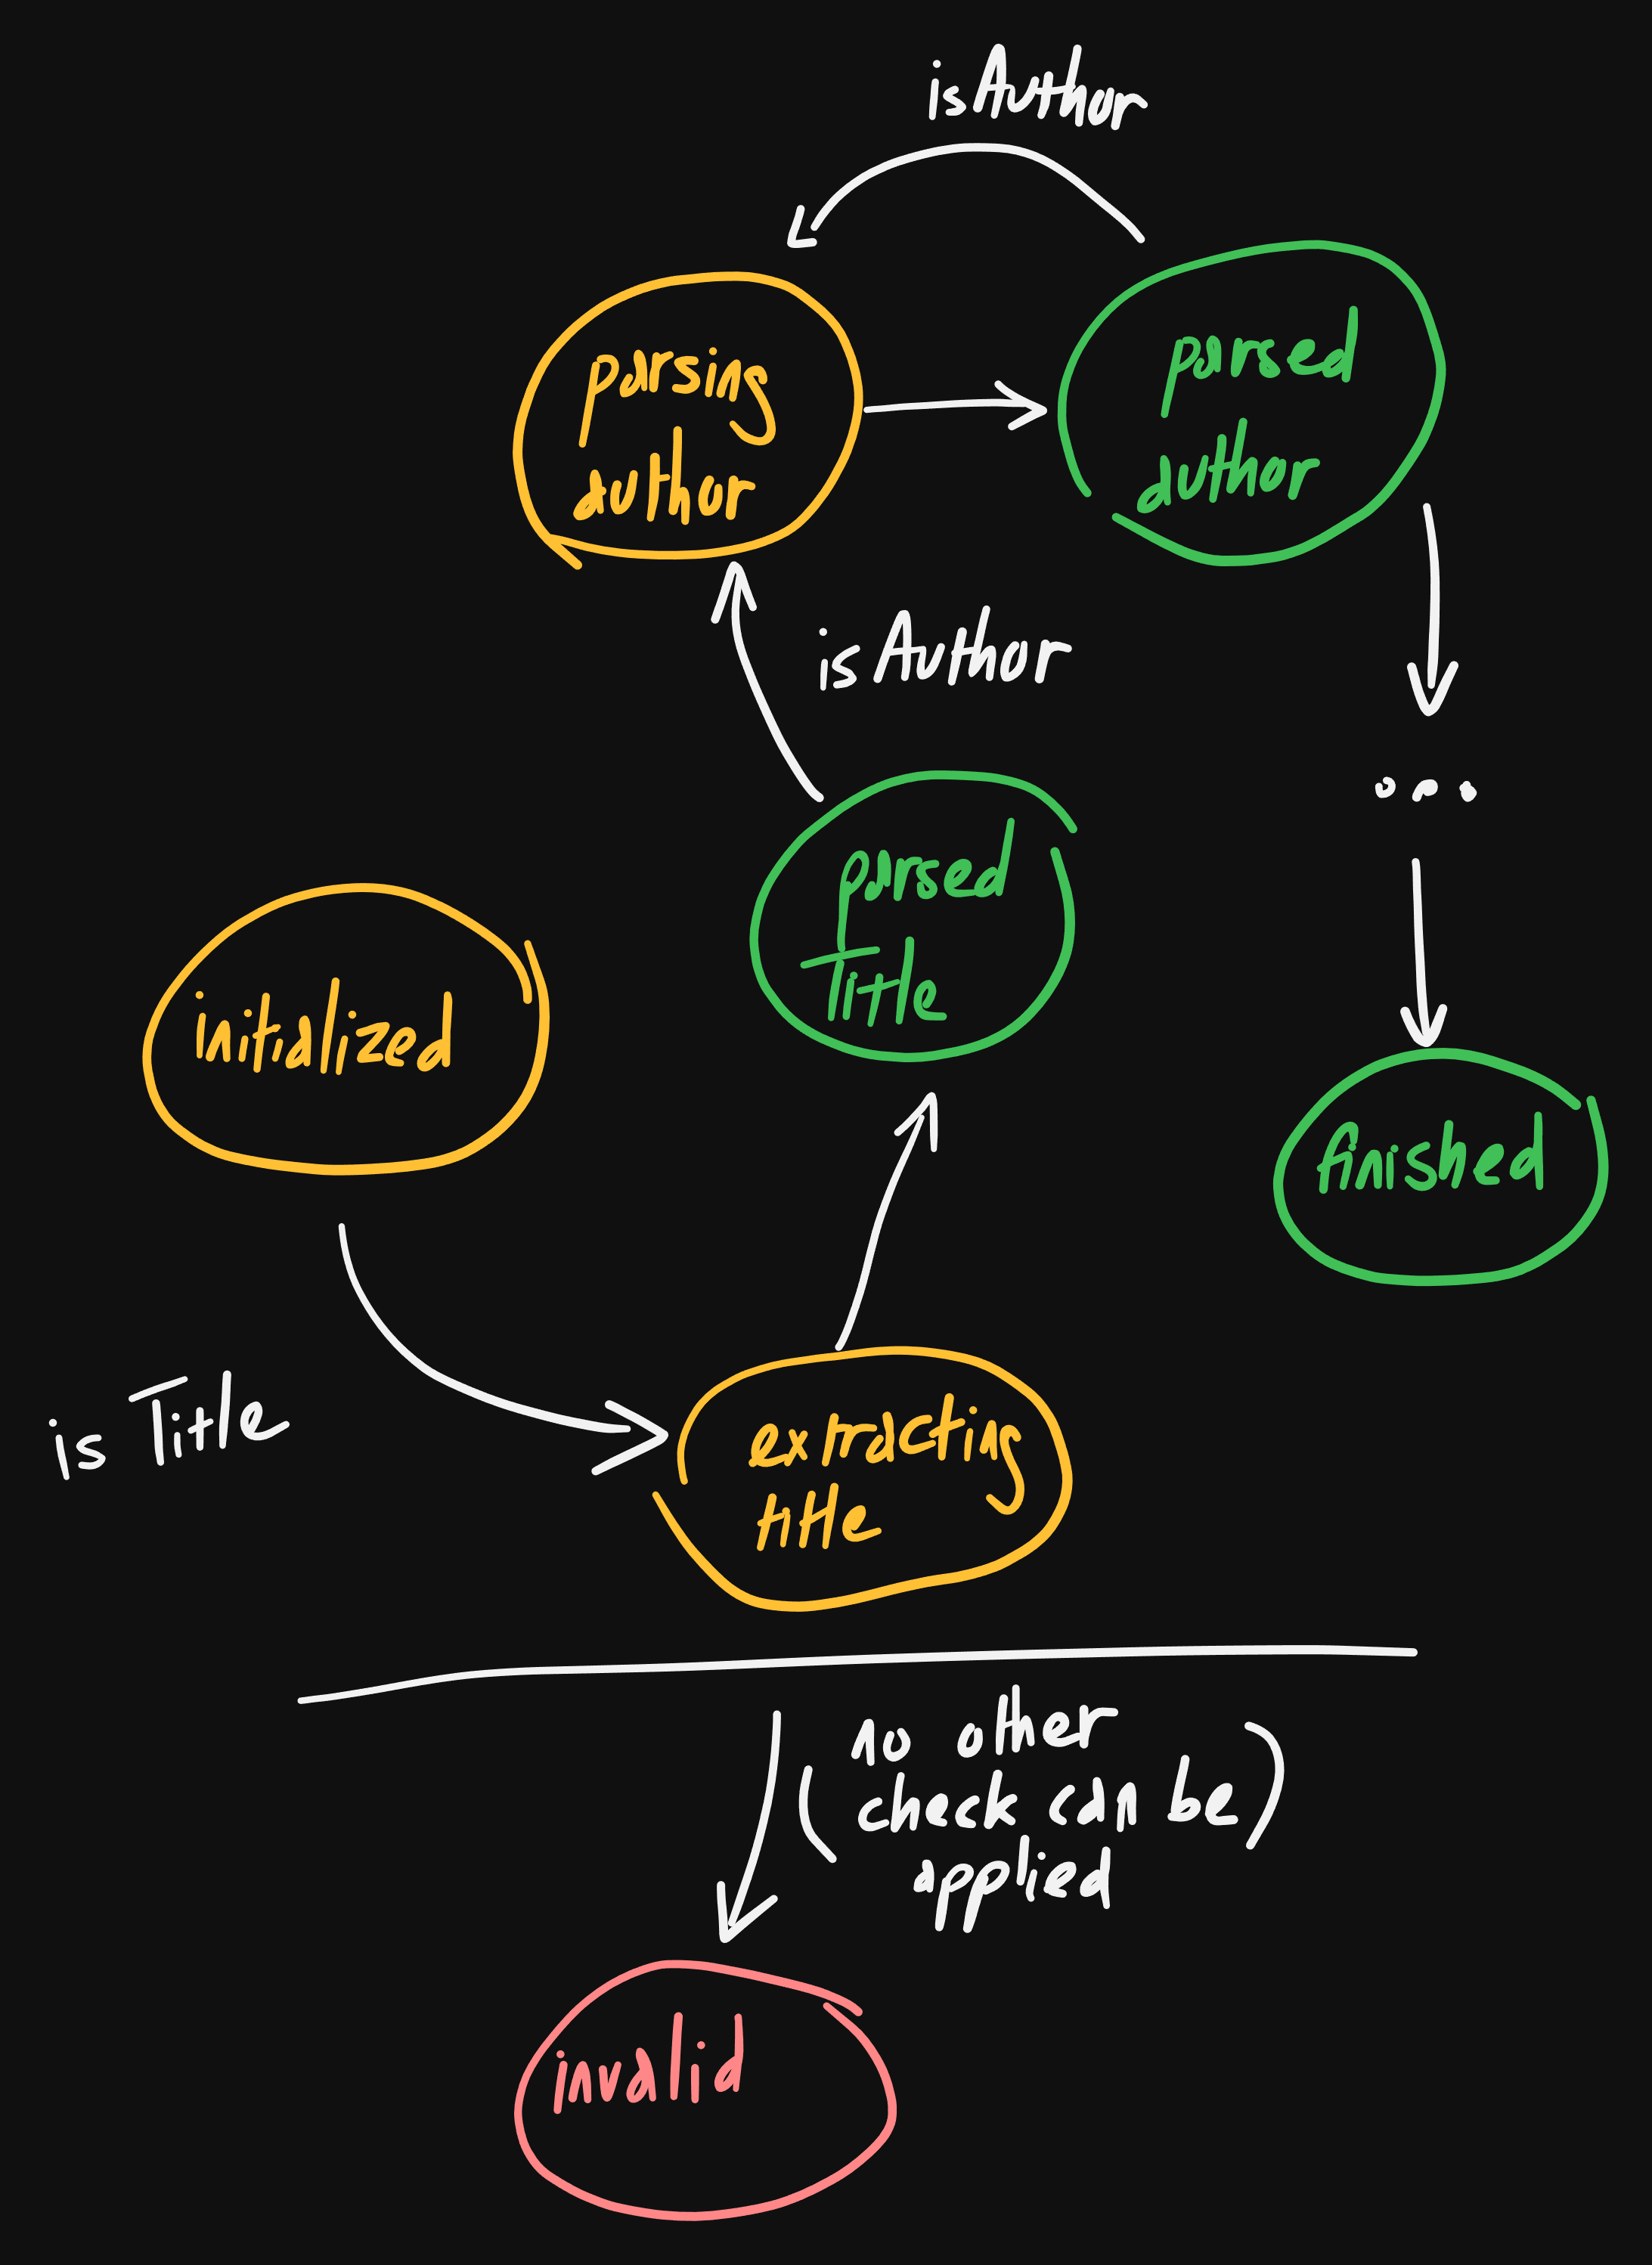 isAuthor
parsing
author
parsed
author
isAuthor
...
parsed
Title
initalized
finished
is Title
extracting
title
(no other
check can be)
applied
invalid